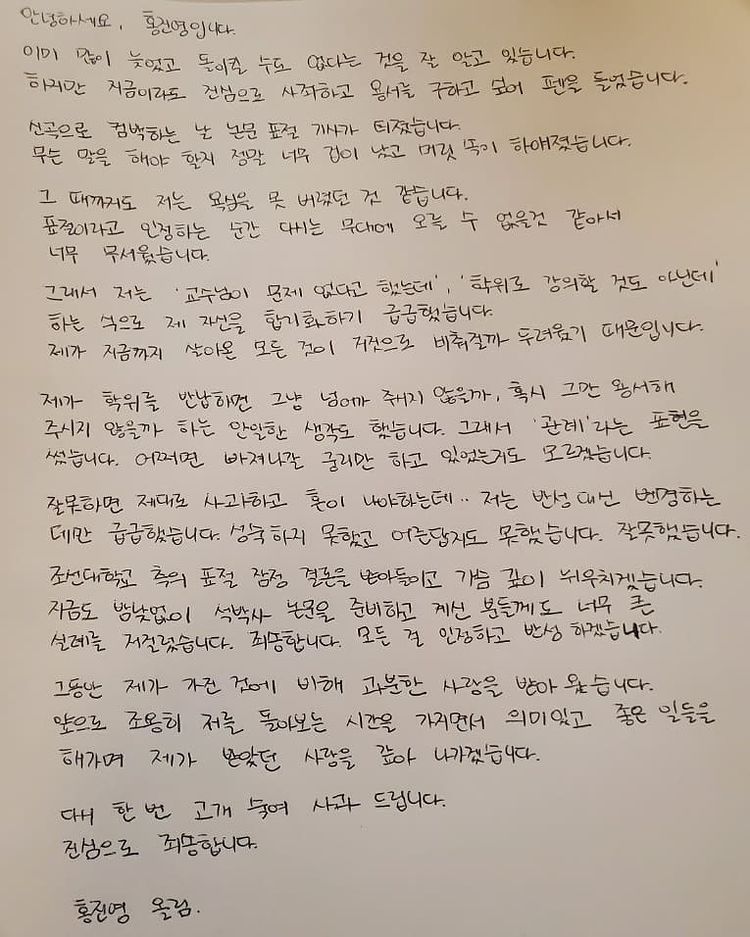 안녕하세요, 홍진영입니다.
이미 많이 늦었고 돌이킬 수도 없다는 것을 잘 알고 있습니다.
하지만 지금이라도 진심으로 사죄하고 용서를 구하고 싶어 펜을 들었습니다.
신곡으로 컴백하는 날 논문 표절 기사가 터졌습니다.
무슨 말을 해야 할지 정말 너무 겁이 났고 머릿속이 하얘졌습니다.
그 때까지도 저는 욕심을 못 버렸던 건 같습니다.
표절이라고 인정하는 순간 다시는 무대에 오늘 수 없을것 같아서
너무 무서웠습니다.
그래서 저는 '교수님이 문제 없다고 했는데', '학위로 강의할 것도 아닌데'
하는 식으로 제 자신을 합리화하기 급급했습니다.
제가 지금까지 살아온 모든 것이 거짓으로 비춰질까 두려웠기 때문입니다.
제가 학위를 반납하면 그냥 넘어가 주시지 않을까, 혹시 그만 용서해
주시지 않을까 하는 안일한 생각도 했습니다. 그래서 '관례'라는 표현을
썼습니다. 어쩌면 빠져나갈 궁리만 하고 있었는지도 모르겠습니다.
잘못하면 제대로 사과하고 혼이 나야하는데.. 저는 반성 대신 변명하는
데만 급급했습니다. 성숙하지 못했고 어른답지도 못했습니다. 잘못했습니다.
조선대학교 측의 표절 잠정 결론을 받아들이고 가슴 깊이 뉘우치겠습니다.
지금도 밤낮없이 석박사 논문을 준비하고 계신 분들께도 너무 큰
실례를 저질렀습니다. 죄송합니다. 모든 걸 인정하고 반성 하겠습니다.
그동안 제가 가진 것에 비해 과분한 사랑을 받아 왔습니다.
앞으로 조용히 저를 돌아보는 시간을 가지면서 의미있고 좋은 일들을
해가며 제가 받았던 사랑을 갚아 나가겠습니다.
다시 한 번 고개 숙여 사과 드립니다.
진심으로 죄송합니다.
홍진영 올림.